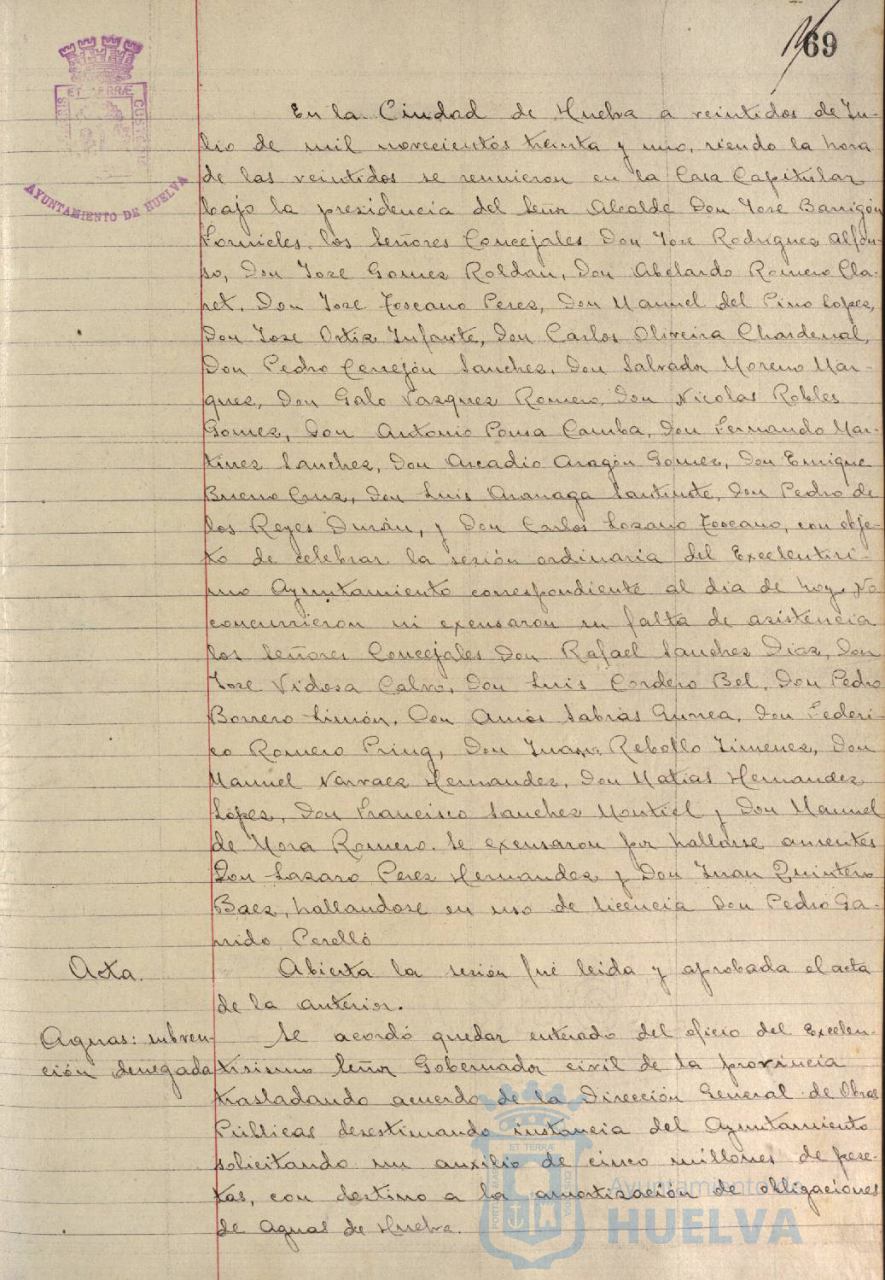 69
AYUNTAMIENTO DE HUELVA
En la Ciudad de Huelva a veintidos de Ju-
lio de mil novecientos treinta y uno, siendo la hora
de las veintidos se reunieron en la Casa Capitular
bajo la presidencia del Señor Alcalde Don Jose Barrigón
Fornieles, los Señores Concejales Don Jose Rodriguez Alfon-
so, Don Jose Gomez Roldán, Don Abelardo Romero Cla-
ret, Don Jose Toscano Perez, Don Manuel del Pino Lopez,
Don Jose Ortiz Infante, Don Carlos Oliveira Chardenal,
Don Pedro Cerrejón Sanchez, Don Salvador Moreno Mar-
quez, Don Galo Vazquez Romero, Don Nicolas Robles
Gomez, Don Antonio Pousa Camba, Don Fernando Mar-
tinez Sanchez, Don Arcadio Aragón Gomez, Don Enrique
Bueno Cruz, Don Luis Aranaga Santinote, Don Pedro de
los Reyes Durán, y Don Carlos Lozano Toscano, con obje-
to de celebrar la sesión ordinaria del Excelentisi-
mo Ayuntamiento correspondiente al dia de hoy. No
concurrieron ni excusaron su falta de asistencia
los Señores Concejales Don Rafael Sanchez Diaz, Don
Jose Vidosa Calvo, Don Luis Cordero Bel, Don Pedro
Borrero Limón, Don Amós Sabrás Gurrea, Don Federi-
co Romero Pring, Don Juan Rebollo Jimenez, Don
Manuel Narvaez Hernandez, Don Matias Hernandez
López, Don Francisco Sanchez Montiel y Don Manuel
de Mora Romero. Se excusaron por hallarse ausentes
Don Lazaro Perez Hernandez y Don Juan Quintero
Baez, hallandose en uso de licencia Don Pedro Ga-
rrido Perelló
Acta.
Abierta la sesión fué leida y aprobada el acta
de la anterior.
Aguas: subven-
ción denegada
Se acordó quedar enterado del oficio del Excelen-
tisimo Señor Gobernador civil de la provincia
trasladando acuerdo de la Dirección General de Obras
Públicas desestimando instancia del Ayuntamiento
solicitando un auxilio de cinco millones de pese-
tas, con destino a la amortización de obligaciones
de Aguas de Huelva.
Ayuntamiento de
HUELVA